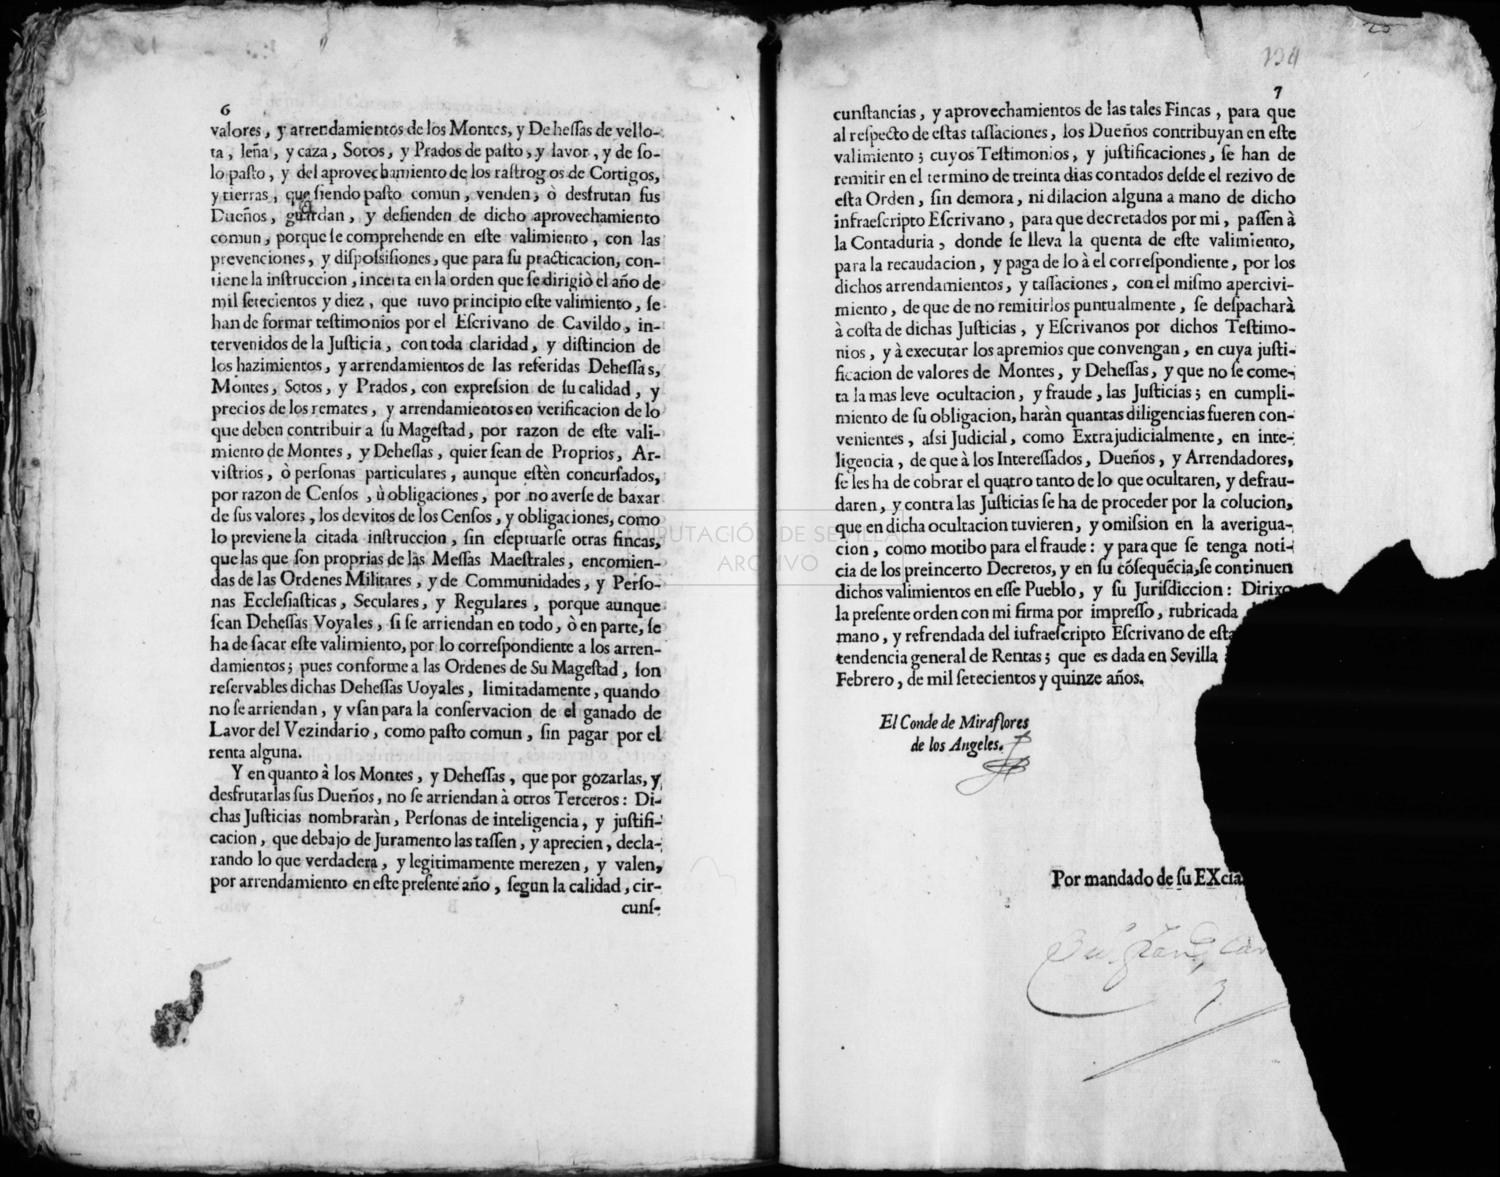 6
valores, y arrendamientos de los Montes, y Dehessas de vello-
ta, leña, y caza, Sotos, y Prados de pasto, y lavor, y de so-
lo pasto, y del aprovechamiento de los rastrogos de Cortigos,
y tierras, que siendo pasto comun, venden, ò desfrutan sus
Dueños, guardan, y defienden de dicho aprovechamiento
comun, porque se comprehende en este valimiento, con las
prevenciones, y dispossisiones, que para su practicacion, con-
tiene la instruccion, incerta en la orden que se dirigiò el año de
mil setecientos y diez, que tuvo principio este valimiento, se
han de formar testimonios por el Escrivano de Cavildo, in-
tervenidos de la Justicia, con toda claridad, y distincion de
los hazimientos, y arrendamientos de las referidas Dehessas,
Montes, Sotos, y Prados, con expression de su calidad, y
precios de los remates, y arrendamientos en verificacion de lo
que deben contribuir a su Magestad, por razon de este vali-
miento de Montes, y Dehessas, quier sean de Proprios, Ar-
vistrios, ò personas particulares, aunque estèn concursados,
por razon de Censos, ù obligaciones, por no averse de baxar
de sus valores, los devitos de los Censos, y obligaciones, como
lo previene la citada instruccion, sin eseptuarse otras fincas,
que las que son proprias de las Messas Maestrales, encomien-
das de las Ordenes Militares, y de Communidades, y Perso-
nas Ecclesiasticas, Seculares, y Regulares, porque aunque
sean Dehessas Voyales, si se arriendan en todo, ò en parte, se
ha de sacar este valimiento, por lo correspondiente a los arren-
damientos; pues conforme a las Ordenes de Su Magestad, son
reservables dichas Dehessas Uoyales, limitadamente, quando
no se arriendan, y vsan para la conservacion de el ganado de
Lavor del Vezindario, como pasto comun, sin pagar por el
renta alguna.
Y en quanto à los Montes, y Dehessas, que por gozarlas, y
desfrutarlas sus Dueños, no se arriendan à otros Terceros: Di-
chas Justicias nombraràn, Personas de inteligencia, y justifi-
cacion, que debajo de Juramento las tassen, y aprecien, decla-
rando lo que verdadera, y legitimamente merezen, y valen,
por arrendamiento en este presente año, segun la calidad, cir-
cuns-
134
7
cunstancias, y aprovechamientos de las tales Fincas, para que
al respecto de estas tassaciones, los Dueños contribuyan en este
valimiento; cuyos Testimonios, y justificaciones, se han de
remitir en el termino de treinta dias contados desde el rezivo de
esta Orden, sin demora, ni dilacion alguna a mano de dicho
infraescripto Escrivano, para que decretados por mi, passen à
la Contaduria, donde se lleva la quenta de este valimiento,
para la recaudacion, y paga de lo à el correspondiente, por los
dichos arrendamientos, y tassaciones, con el mismo apercivi-
miento, de que de no remitirlos puntualmente, se despacharà
à costa de dichas Justicias, y Escrivanos por dichos Testimo-
nios, y à executar los apremios que convengan, en cuya justi-
ficacion de valores de Montes, y Dehessas, y que no se come-
ta la mas leve ocultacion, y fraude, las Justicias; en cumpli-
miento de su obligacion, haràn quantas diligencias fueren con-
venientes, assi Judicial, como Extrajudicialmente, en inte-
ligencia, de que à los Interessados, Dueños, y Arrendadores,
se les ha de cobrar el quatro tanto de lo que ocultaren, y defrau-
daren, y contra las Justicias se ha de proceder por la colucion,
que en dicha ocultacion tuvieren, y omission en la averigua-
cion, como motibo para el fraude: y para que se tenga noti-
cia de los preincerto Decretos, y en su cõsequẽcia, se continuen
dichos valimientos en esse Pueblo, y su Jurisdiccion: Dirixo
la presente orden con mi firma por impresso, rubricada
mano, y refrendada del iufraescripto Escrivano de esta
tendencia general de Rentas; que es dada en Sevilla
Febrero, de mil setecientos y quinze años.
El Conde de Miraflores
de los Angeles.
Por mandado de su EXcia.
DIPUTACIÓN DE SEVILLA
ARCHIVO